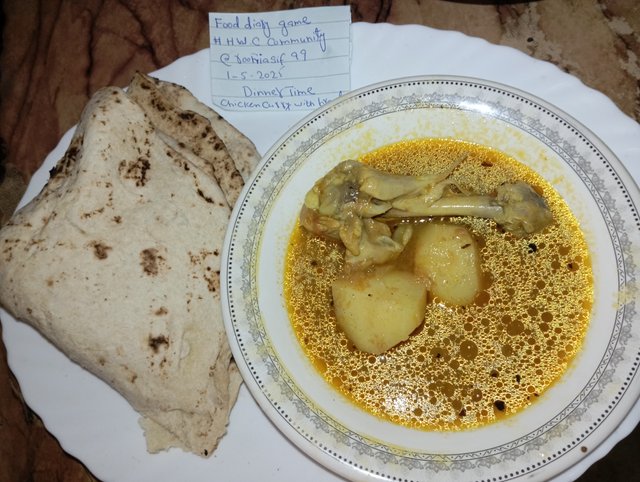 Food diary game
# HWC Community
1-5-2021
Dinner Time
Chicken Curry with